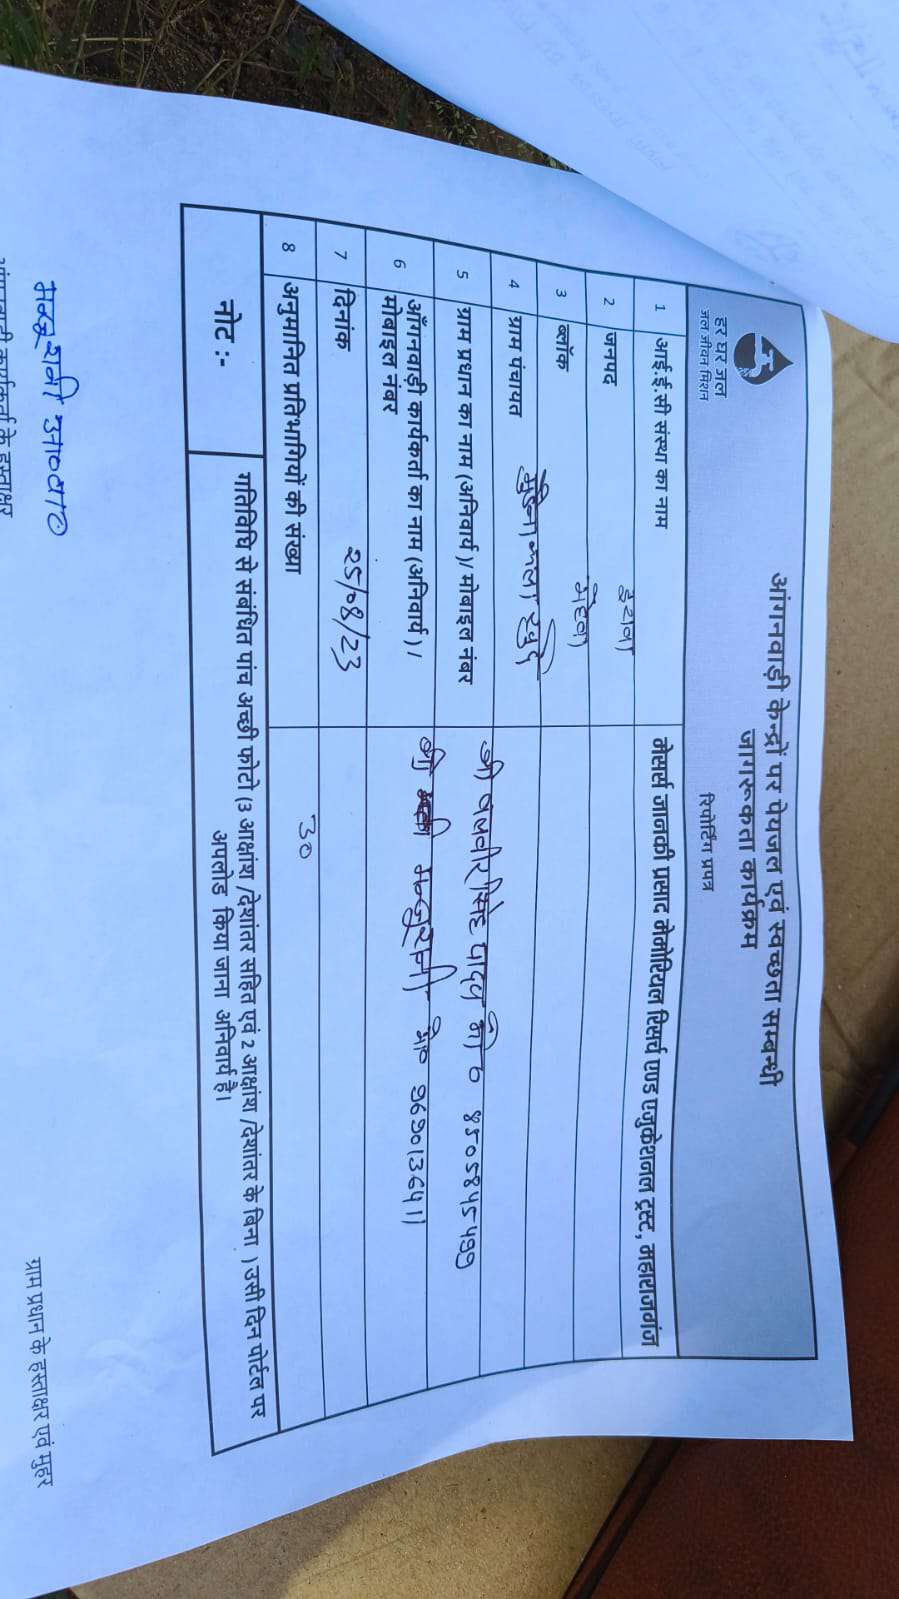 हर घर जल
जल जीवन मिशन
आंगनवाड़ी केन्द्रों पर पेयजल एवं स्वच्छता सम्बन्धी
जागरूकता कार्यक्रम
रिपोर्टिंग प्रपत्र
1 आई.ई.सी संस्था का नाम मेसर्स जानकी प्रसाद मेमोरियल रिसर्च एण्ड एजुकेशनल ट्रस्ट, महाराजगंज
2 जनपद इटावा
3 ब्लॉक महेवा
4 ग्राम पंचायत
5 ग्राम प्रधान का नाम (अनिवार्य)/ मोबाइल नंबर श्री बलवीर सिंह यादव मो०
6 आँगनवाड़ी कार्यकर्ता का नाम (अनिवार्य) / श्री मन्जू रानी मो०
मोबाइल नंबर
7 दिनांक 25/08/23
8 अनुमानित प्रतिभागियों की संख्या 30
नोट :- गतिविधि से संबंधित पांच अच्छी फोटो (3 आक्षांश /देशांतर सहित एवं 2 आक्षांश /देशांतर के बिना ) उसी दिन पोर्टल पर
अपलोड किया जाना अनिवार्य है।
कार्यकर्ता के हस्ताक्षर ग्राम प्रधान के हस्ताक्षर एवं मुहर